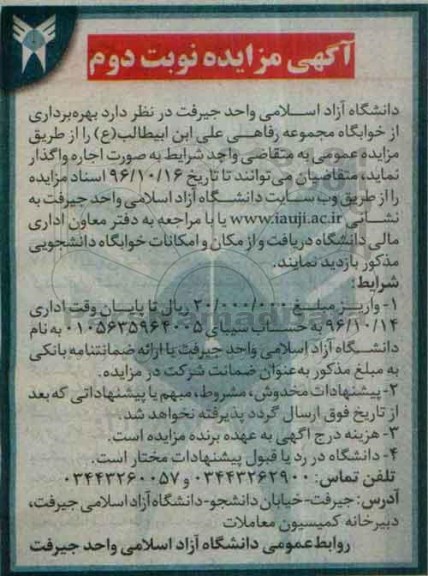 آگهی مزایده نوبت دوم
دانشگاه آزاد اسـلامی واحد جیرفت در نظر دارد بهره‌برداری
از خوابگاه مجموعه رفاهـی علی ابن ابیطالب(ع) را از طریق
مزایده عمومی به متقاضی واجد شرایط به صورت اجاره واگذار
نماید، متقاضیان می‌توانند تا تاریخ ۹۶/۱۰/۱۶ اسناد مزایده
را از طریق وب سـایت دانشـگاه آزاد اسلامی واحد جیرفت به
نشـانی www.iauji.ac.ir یا با مراجعه به دفتر معاون اداری
مالی دانشگاه دریافت و از مکان و امکانات خوابگاه دانشجویی
مذکور بازدید نمایند.
شرایط:
۱- واریـز مبلـغ ۲۰/۰۰۰/۰۰۰ ریال تا پایـان وقت اداری
۹۶/۱۰/۱۴ به حساب سیبای ۰۱۰۵۶۳۵۹۶۴۰۰۵ به نام
دانشـگاه آزاد اسلامی واحد جیرفت یا ارائه ضمانتنامه بانکی
به مبلغ مذکور به‌عنوان ضمانت شرکت در مزایده.
۲- پیشنهادات مخدوش، مشروط، مبهم یا پیشنهاداتی که بعد
از تاریخ فوق ارسال گردد پذیرفته نخواهد شد.
۳- هزینه درج آگهی به عهده برنده مزایده است.
۴- دانشگاه در رد یا قبول پیشنهادات مختار است.
تلفن تماس: ۰۳۴۴۳۲۶۲۹۰۰ و ۰۳۴۴۳۲۶۰۰۵۷
آدرس: جیرفت-خیابان دانشجو-دانشگاه آزاد اسلامی جیرفت،
دبیرخانه کمیسیون معاملات
روابط عمومی دانشگاه آزاد اسلامی واحد جیرفت